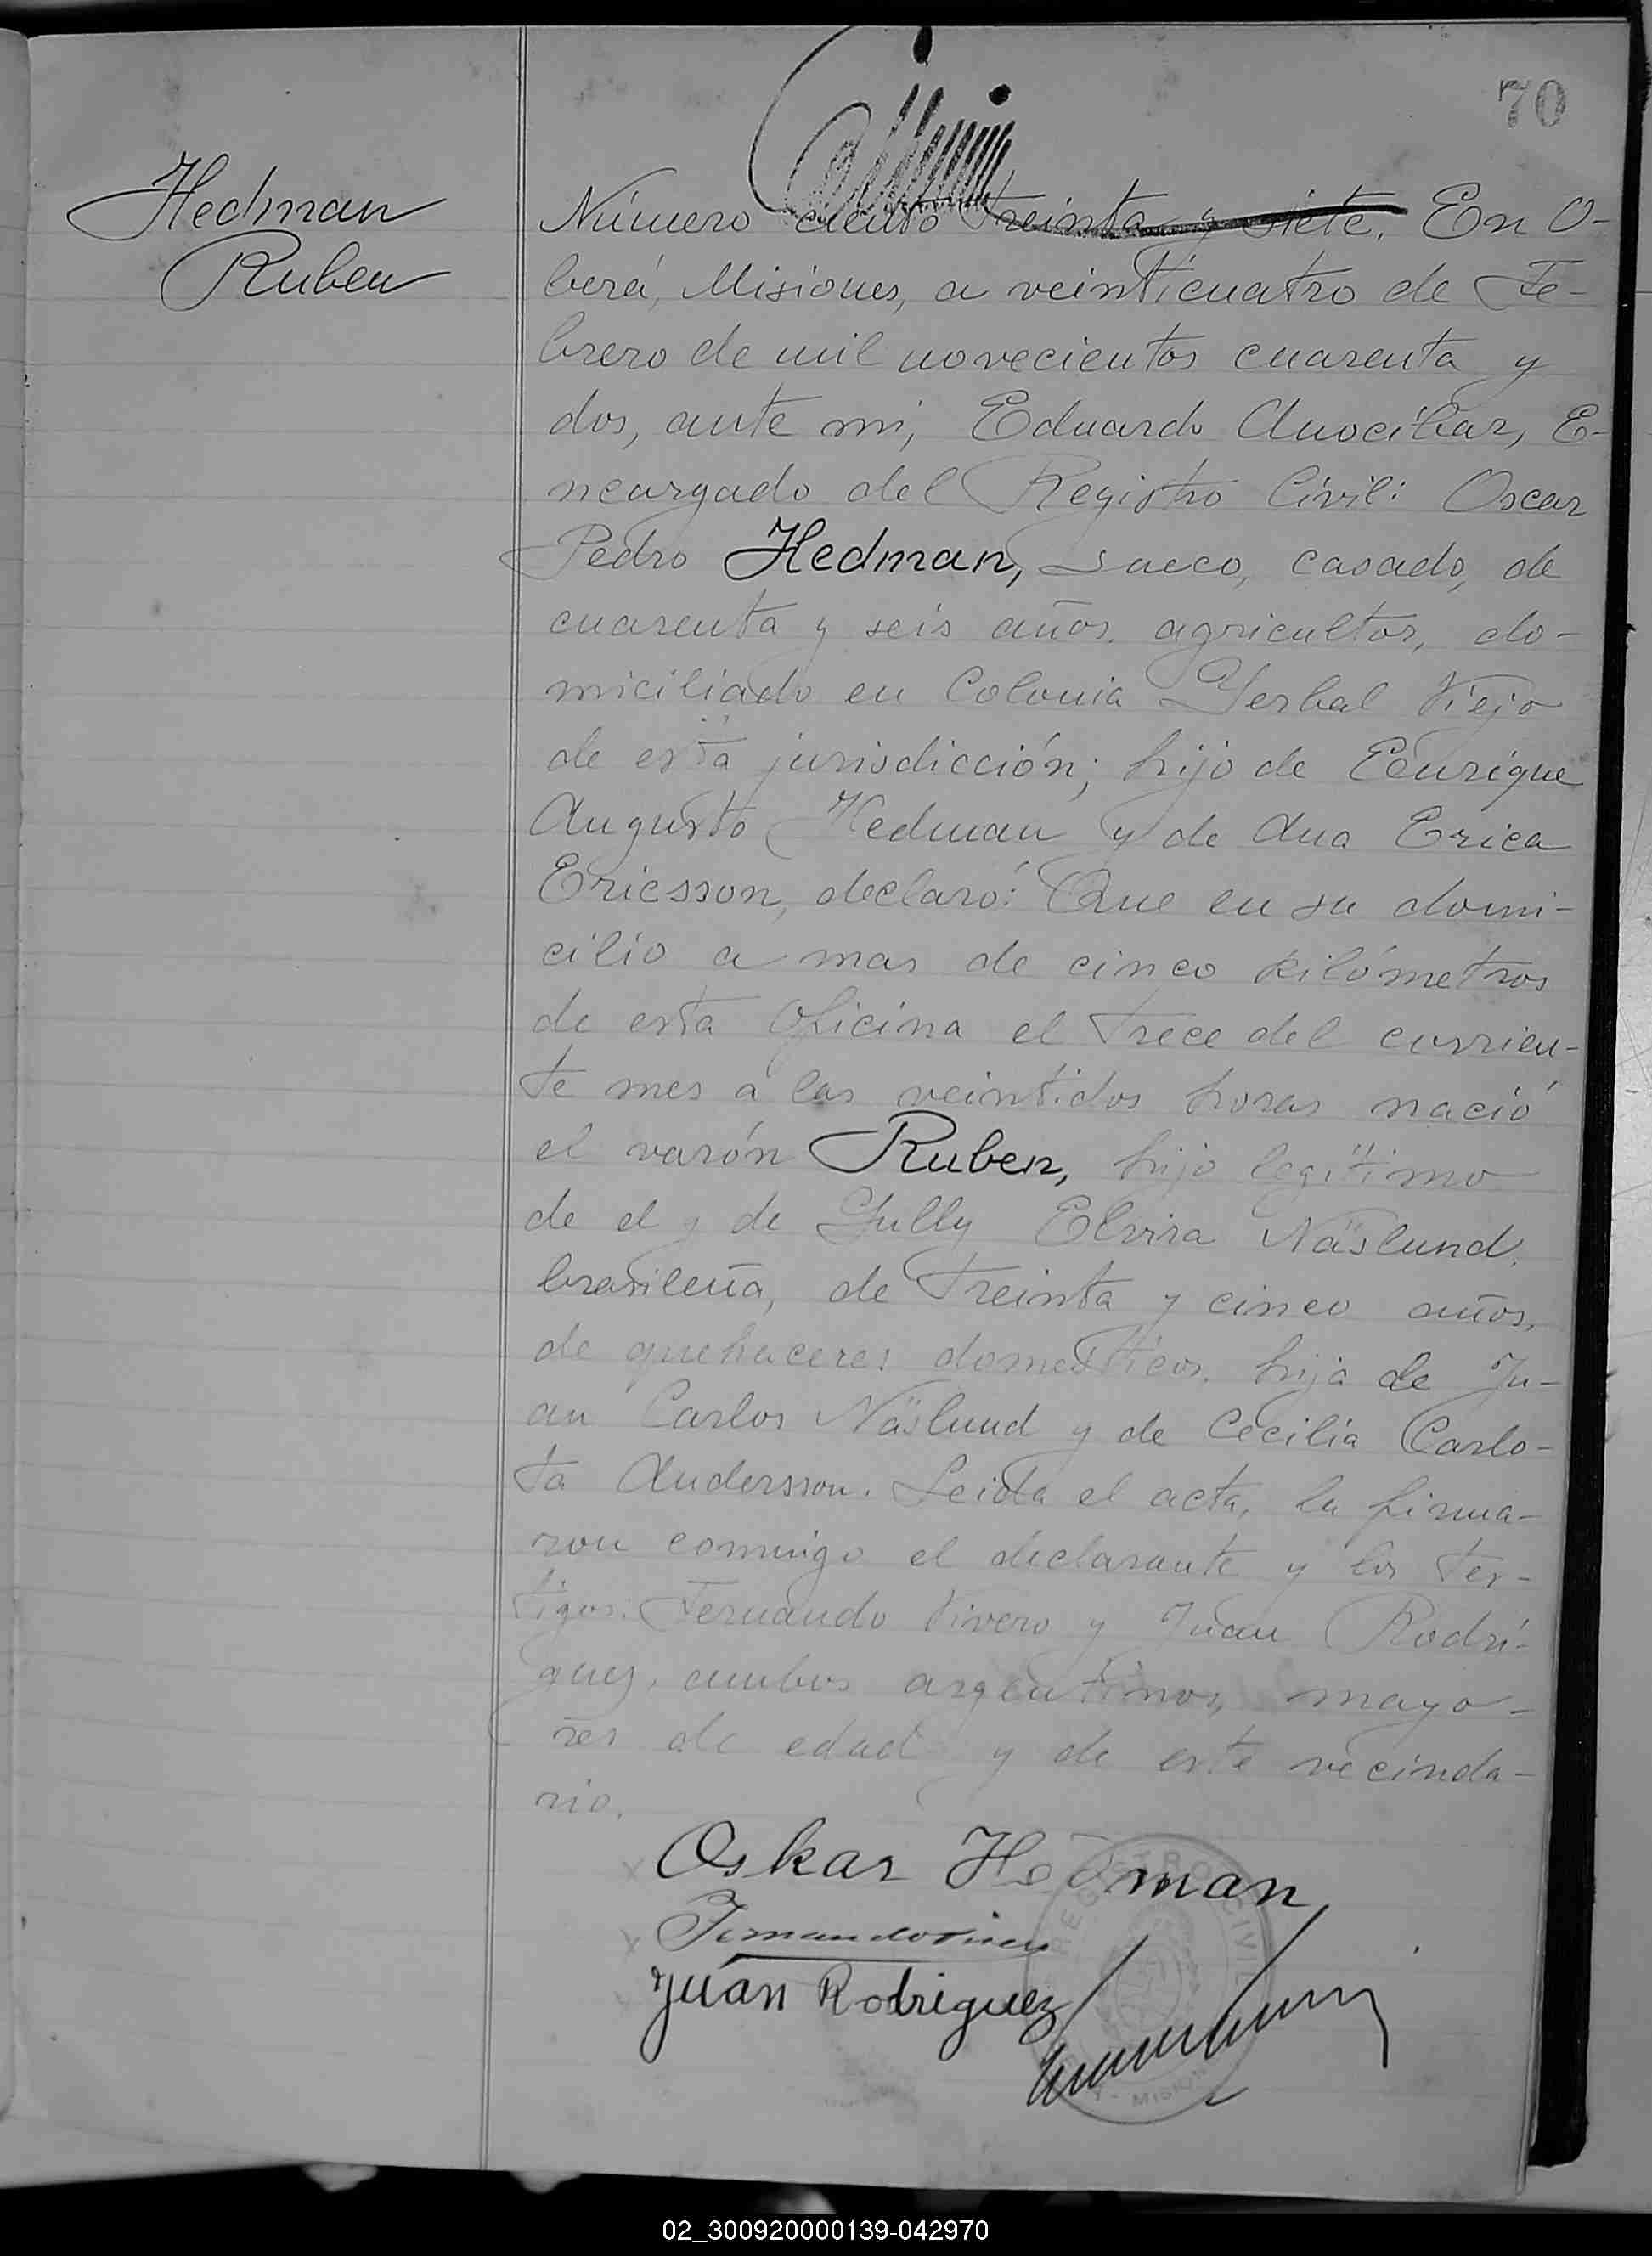 70
Hedman
Ruben
Número ciento treinta y siete. En O-
berá, Misiones, a veinticuatro de Fe-
brero de mil novecientos cuarenta y
dos, ante mi, Eduardo Anocibar, E-
ncargado del Registro Civil: Oscar
Pedro Hedman, sueco, casado, de
cuarenta y seis años, agricultor, do-
miciliado en Colonia Yerbal Viejo
de esta jurisdicción; hijo de Enrique
Augusto Hedman y de Ana Erica
Ericsson, declaró: Que en su domi-
cilio a mas de cinco kilómetros
de esta oficina el trece del corrien-
te mes a las veintidos horas nació
el varón Ruben, hijo legítimo
de el y de Elvira Näslund,
brasileña, de treinta y cinco años,
de quehaceres domesticos, hija de Ju-
an Carlos Näslund y de Cecilia Carlo-
ta Andersson. Leida el acta, la firma-
ron conmigo el declarante y los tes-
tigos: Fernando Vivero y Juan Rodrí-
guez, ambos argentinos, mayo-
res de edad y de este vecinda-
rio.
Oskar Hedman
Juan Rodriguez
REGISTRO CIVIL
MISIONES
02_300920000139-042970